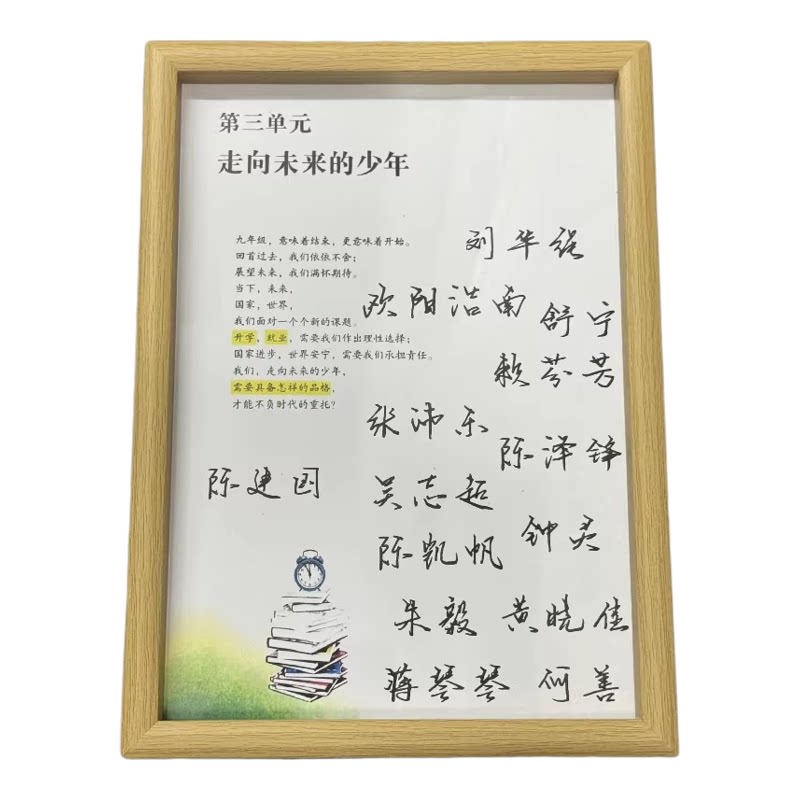 第三单元
走向未来的少年
九年级，意味着结束，更意味着开始。
回首过去，我们依依不舍；
展望未来，我们满怀期待。
当下，未来，
国家，世界，
我们面对一个个新的课题。
升学，就业，需要我们作出理性选择；
国家进步，世界安宁，需要我们承担责任。
我们，走向未来的少年，
需要具备怎样的品格，
才能不负时代的重托？
刘华强
欧阳浩南
舒宁
赖芬芳
张沛乐
陈泽铮
陈建国
吴志超
钟灵
陈凯帆
朱毅 黄晓佳
蒋琴琴 何善